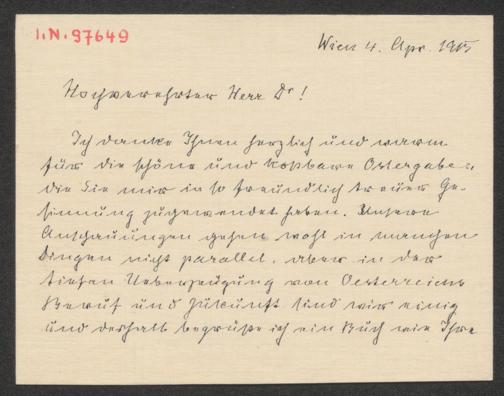 I.N. 97649
Wien 4. Apr. 1915
Hochverehrter Herr Dr!
Ich danke Ihnen herzlich und warm
für die schöne und kostbare Ostergabe,
die Sie mir in so freundlich treuer Ge-
sinnung zugewendet haben. Unsere
Anschauungen gehen wohl in manchen
Dingen nicht parallel, aber in der
tiefen Ueberzeugung von Oesterreichs
Beruf und Zukunft sind wir einig
und deshalb begrüße ich ein Buch wie Ihre